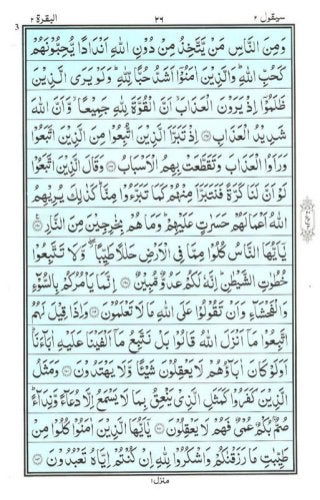 سيقول ٢ ٢٦ البقرة ٢
3
وَمِنَ النَّاسِ مَنْ يَّتَّخِذُ مِنْ دُوْنِ اللّٰهِ اَنْدَادًا يُّحِبُّوْنَهُمْ
كَحُبِّ اللّٰهِ ؕ وَالَّذِيْنَ اٰمَنُوْۤا اَشَدُّ حُبًّا لِّلّٰهِ ؕ وَلَوْ يَرَى الَّذِيْنَ
ظَلَمُوْۤا اِذْ يَرَوْنَ الْعَذَابَ ۙ اَنَّ الْقُوَّةَ لِلّٰهِ جَمِيْعًا ۙ وَّاَنَّ اللّٰهَ
شَدِيْدُ الْعَذَابِ ﴿١٦٥﴾ اِذْ تَبَرَّاَ الَّذِيْنَ اتُّبِعُوْا مِنَ الَّذِيْنَ اتَّبَعُوْا
وَرَاَوُا الْعَذَابَ وَتَقَطَّعَتْ بِهِمُ الْاَسْبَابُ ﴿١٦٦﴾ وَقَالَ الَّذِيْنَ اتَّبَعُوْا
لَوْ اَنَّ لَنَا كَرَّةً فَنَتَبَرَّاَ مِنْهُمْ كَمَا تَبَرَّءُوْا مِنَّا ؕ كَذٰلِكَ يُرِيْهِمُ
اللّٰهُ اَعْمَالَهُمْ حَسَرٰتٍ عَلَيْهِمْ ؕ وَمَا هُمْ بِخٰرِجِيْنَ مِنَ النَّارِ ﴿١٦٧﴾
يٰۤاَيُّهَا النَّاسُ كُلُوْا مِمَّا فِى الْاَرْضِ حَلٰلًا طَيِّبًا ۖ وَّلَا تَتَّبِعُوْا
خُطُوٰتِ الشَّيْطٰنِ ؕ اِنَّهٗ لَكُمْ عَدُوٌّ مُّبِيْنٌ ﴿١٦٨﴾ اِنَّمَا يَاْمُرُكُمْ بِالسُّوْٓءِ
وَالْفَحْشَآءِ وَاَنْ تَقُوْلُوْا عَلَى اللّٰهِ مَا لَا تَعْلَمُوْنَ ﴿١٦٩﴾ وَاِذَا قِيْلَ لَهُمُ
اتَّبِعُوْا مَاۤ اَنْزَلَ اللّٰهُ قَالُوْا بَلْ نَتَّبِعُ مَاۤ اَلْفَيْنَا عَلَيْهِ اٰبَآءَنَا ؕ
اَوَلَوْ كَانَ اٰبَآؤُهُمْ لَا يَعْقِلُوْنَ شَيْـًٔا وَّلَا يَهْتَدُوْنَ ﴿١٧٠﴾ وَمَثَلُ
الَّذِيْنَ كَفَرُوْا كَمَثَلِ الَّذِىْ يَنْعِقُ بِمَا لَا يَسْمَعُ اِلَّا دُعَآءً وَّنِدَآءً ؕ
صُمٌّۢ بُكْمٌ عُمْىٌ فَهُمْ لَا يَعْقِلُوْنَ ﴿١٧١﴾ يٰۤاَيُّهَا الَّذِيْنَ اٰمَنُوْا كُلُوْا مِنْ
طَيِّبٰتِ مَا رَزَقْنٰكُمْ وَاشْكُرُوْا لِلّٰهِ اِنْ كُنْتُمْ اِيَّاهُ تَعْبُدُوْنَ ﴿١٧٢﴾
منزل ١